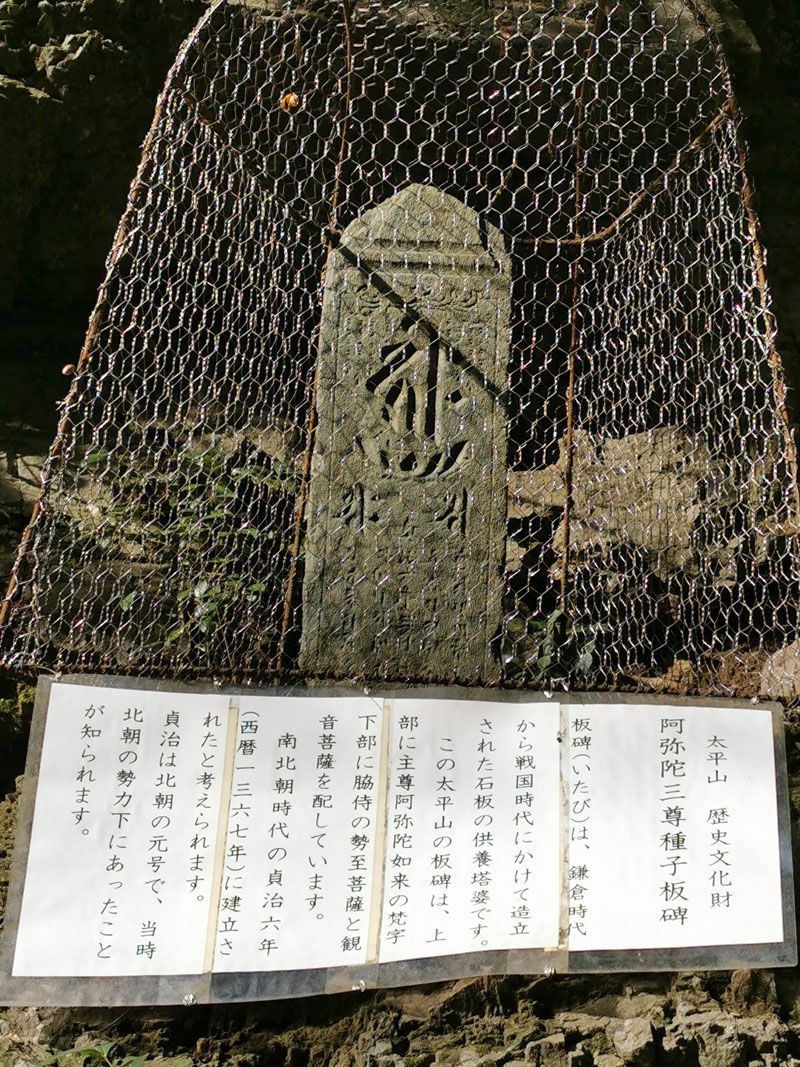 太平山　歴史文化財
阿弥陀三尊種子板碑
板碑(いたび)は、鎌倉時代
から戦国時代にかけて造立
された石板の供養塔婆です。
この太平山の板碑は、上
部に主尊阿弥陀如来の梵字
下部に脇侍の勢至菩薩と観
音菩薩を配しています。
南北朝時代の貞治六年
(西暦一三六七年)に建立さ
れたと考えられます。
貞治は北朝の元号で、当時
北朝の勢力下にあったこと
が知られます。